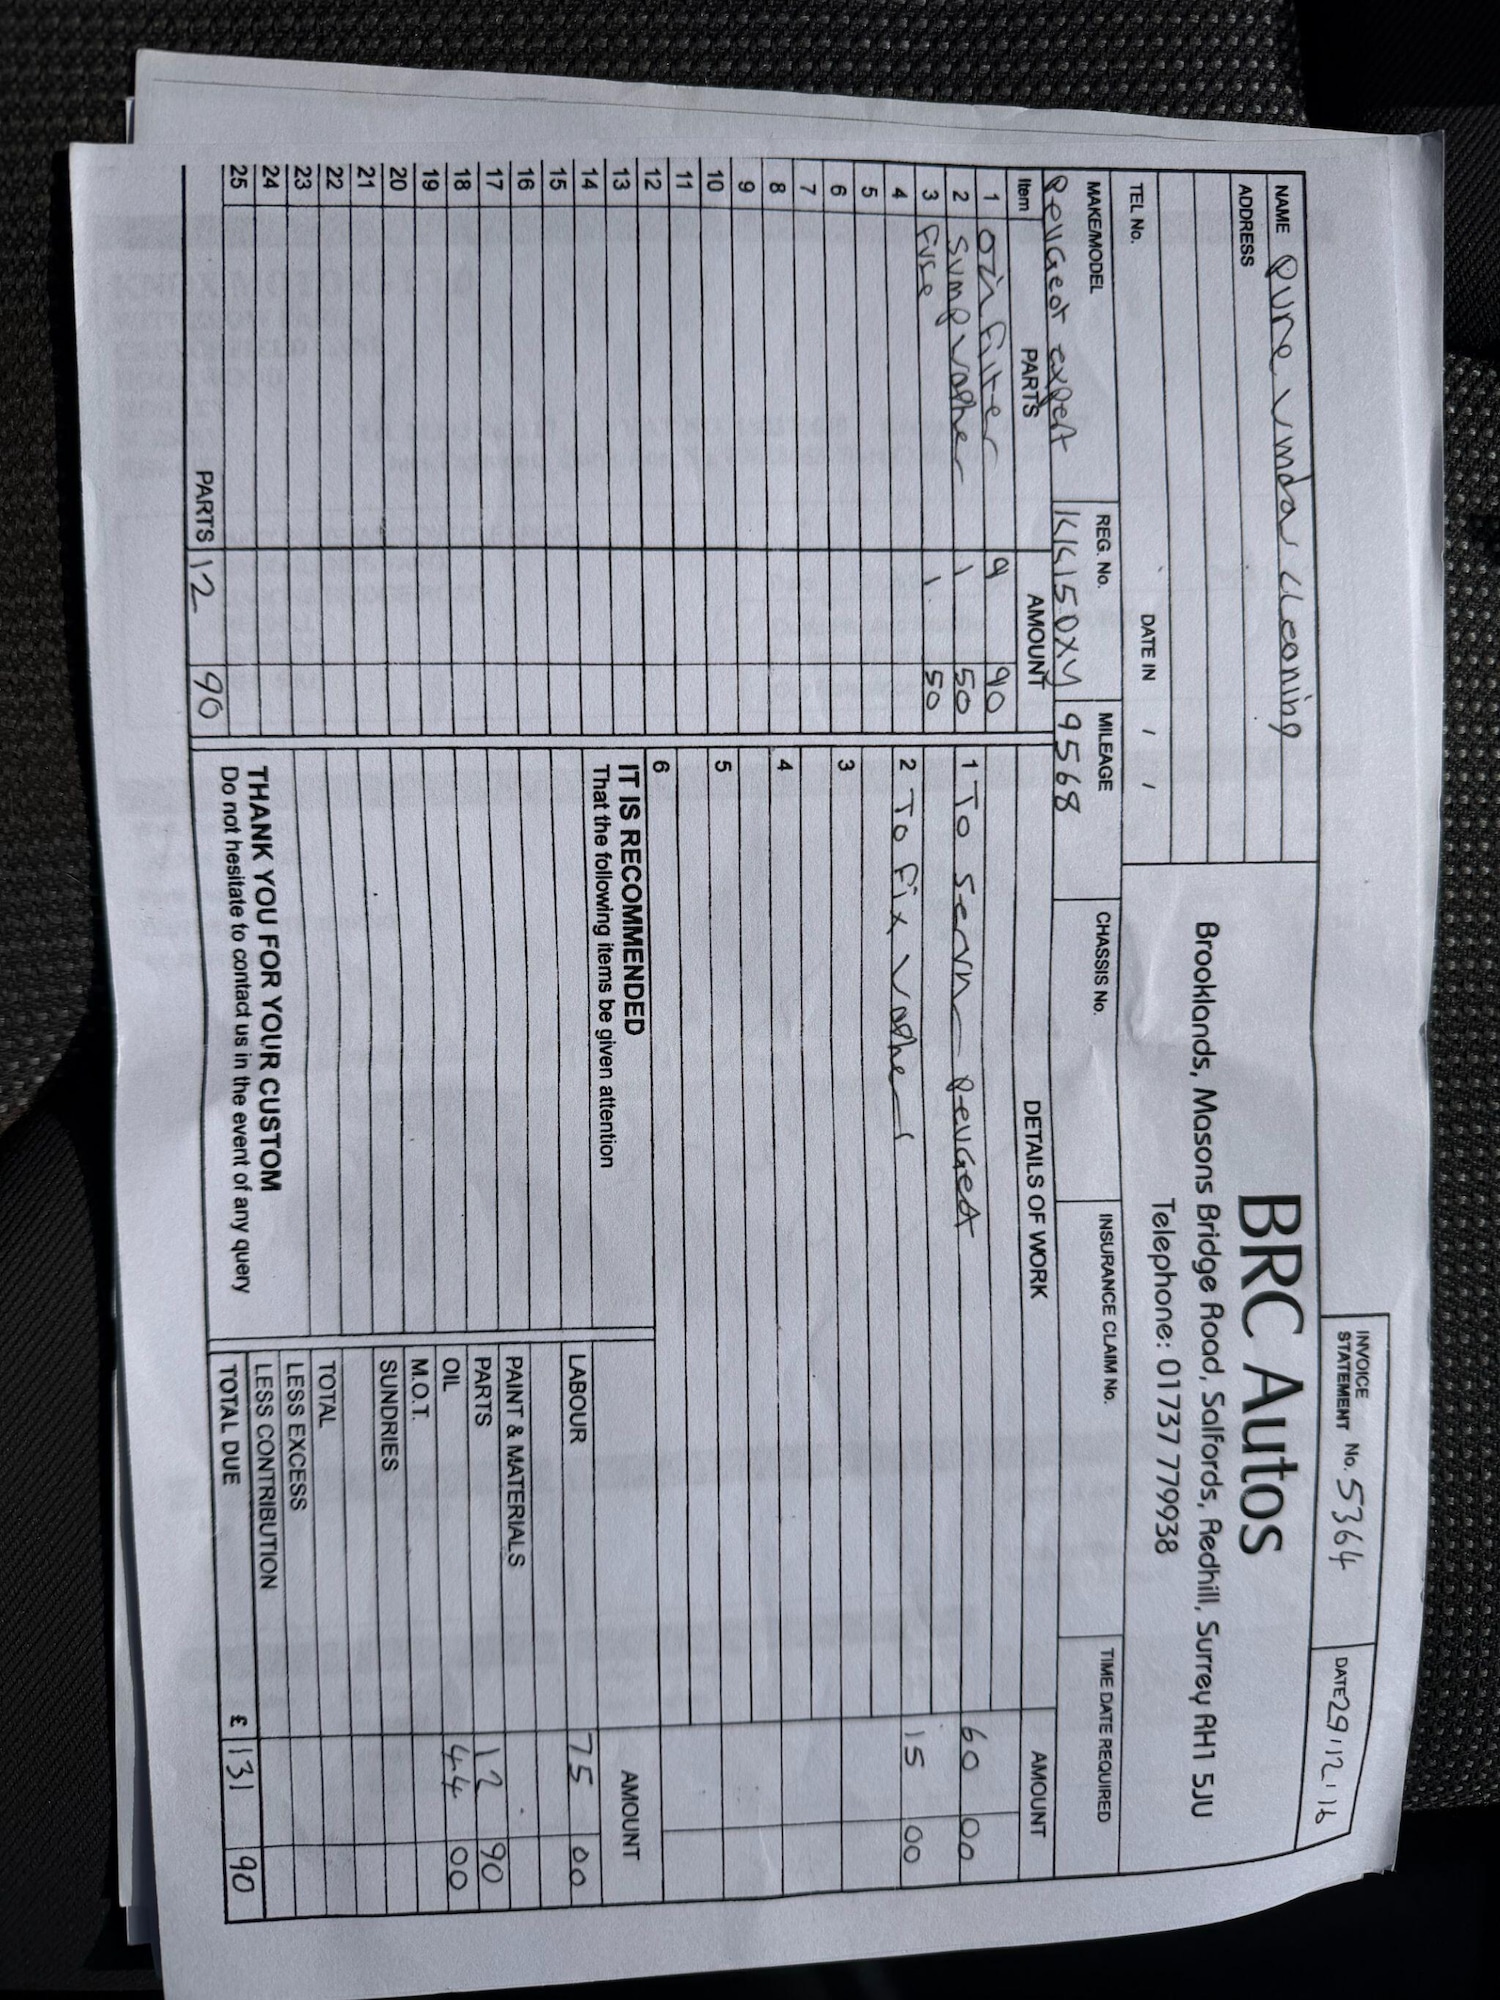 INVOICE
STATEMENT No. 5364 DATE 29.12.16
NAME Pure Window Cleaning
ADDRESS
BRC Autos
Brooklands, Masons Bridge Road, Salfords, Redhill, Surrey RH1 5JU
Telephone: 01737 779938
TEL No. DATE IN / /
MAKE/MODEL REG. No. MILEAGE CHASSIS No. INSURANCE CLAIM No. TIME DATE REQUIRED
Peugeot expert KK150XY 9568
Item PARTS AMOUNT DETAILS OF WORK AMOUNT
1 Oil filter 9 90 1 To service Peugeot 60 00
2 Sump washer 1 50
3 Fuse 1 50 2 To fix washer 15 00
4
5 3
6
7 4
8
9 5
10
11 6
12 IT IS RECOMMENDED AMOUNT
13 That the following items be given attention
14 LABOUR 75 00
15
16 PAINT & MATERIALS
17 PARTS 12 90
18 OIL 44 00
19 M.O.T.
20 SUNDRIES
21
22 TOTAL
23 LESS EXCESS
24 THANK YOU FOR YOUR CUSTOM LESS CONTRIBUTION
25 Do not hesitate to contact us in the event of any query TOTAL DUE £ 131 90
PARTS 12 90